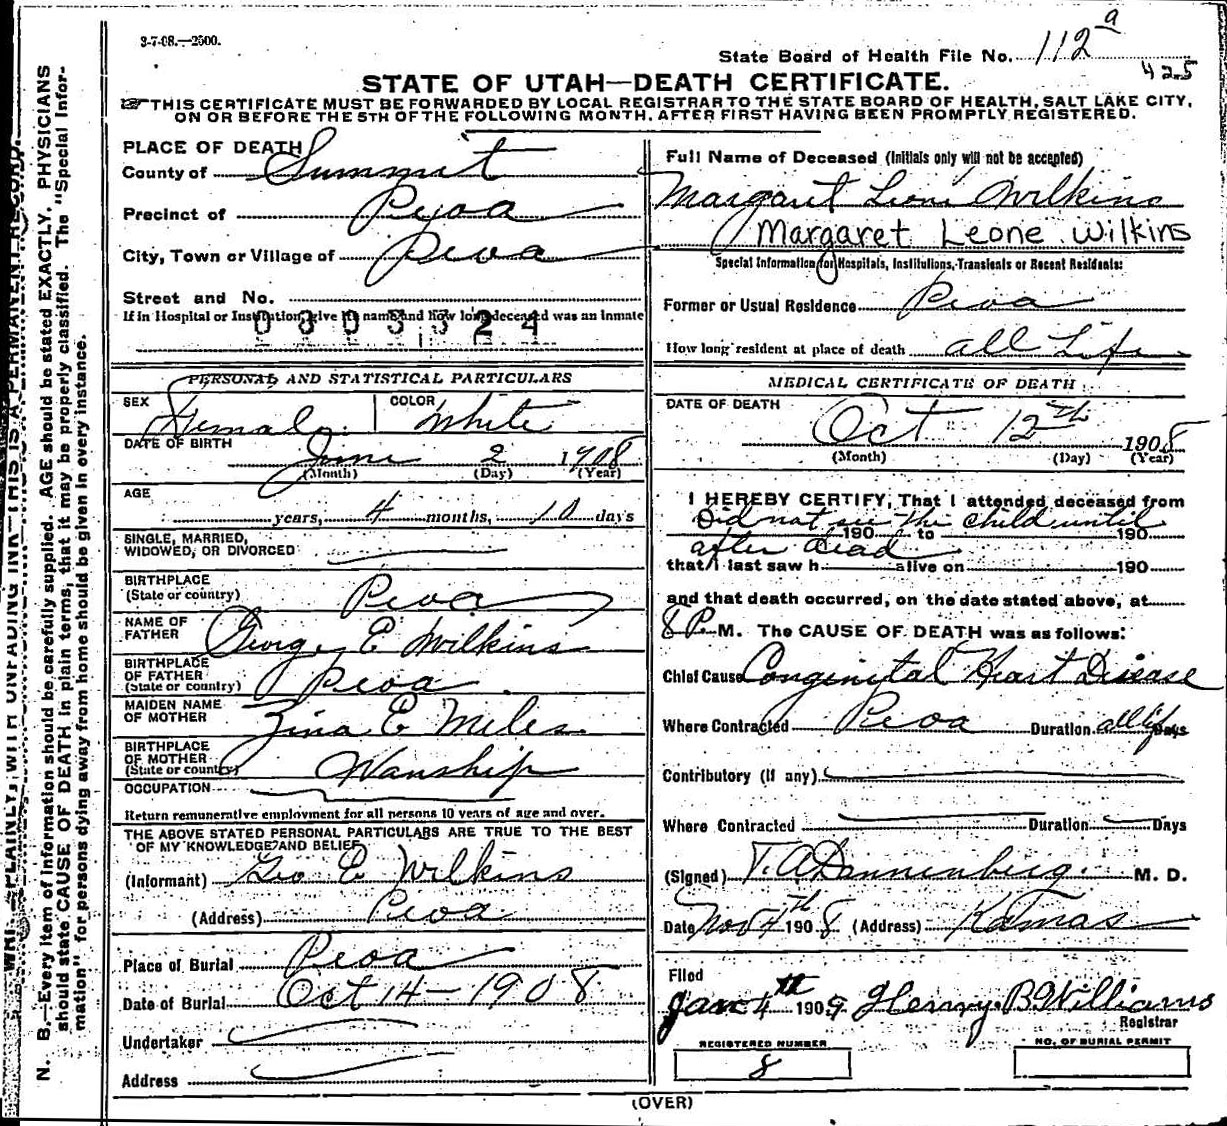 3-7-08.—2500.
State Board of Health File No. 112 a
425
STATE OF UTAH—DEATH CERTIFICATE.
☞THIS CERTIFICATE MUST BE FORWARDED BY LOCAL REGISTRAR TO THE STATE BOARD OF HEALTH, SALT LAKE CITY,
ON OR BEFORE THE 5TH OF THE FOLLOWING MONTH, AFTER FIRST HAVING BEEN PROMPTLY REGISTERED.
PLACE OF DEATH
County of Summit
Precinct of Peoa
City, Town or Village of Peoa
Street and No.
If in Hospital or Institution, give its name and how long deceased was an inmate
0803324
PERSONAL AND STATISTICAL PARTICULARS
SEX Female COLOR White
DATE OF BIRTH
June 2 1908
(Month) (Day) (Year)
AGE
years, 4 months, 10 days
SINGLE, MARRIED,
WIDOWED, OR DIVORCED
BIRTHPLACE
(State or country) Peoa
NAME OF
FATHER George E Wilkins
BIRTHPLACE
OF FATHER
(State or country) Peoa
MAIDEN NAME
OF MOTHER Zina E Miles
BIRTHPLACE
OF MOTHER
(State or country) Wanship
OCCUPATION
Return remunerative employment for all persons 10 years of age and over.
THE ABOVE STATED PERSONAL PARTICULARS ARE TRUE TO THE BEST
OF MY KNOWLEDGE AND BELIEF
(Informant) Geo E Wilkins
(Address) Peoa
Place of Burial Peoa
Date of Burial Oct 14 - 1908
Undertaker
Address
Full Name of Deceased (Initials only will not be accepted)
Margaret Leoni Wilkins
Margaret Leone Wilkins
Special Information for Hospitals, Institutions, Transients or Recent Residents:
Former or Usual Residence Peoa
How long resident at place of death all Life
MEDICAL CERTIFICATE OF DEATH
DATE OF DEATH
Oct 12th 1908
(Month) (Day) (Year)
I HEREBY CERTIFY, That I attended deceased from
Did not see the child until
190 to 190
after dead
that I last saw h alive on 190
and that death occurred, on the date stated above, at
8 P. M. The CAUSE OF DEATH was as follows:
Chief Cause Congenital Heart Disease
Where Contracted Peoa Duration all life Days
Contributory (if any)
Where Contracted Duration Days
(Signed) T. A Dannenberg. M. D.
Date Nov 4th 1908 (Address) Kamas
Filed
Jan 4th 1909 Henry B Williams
Registrar
REGISTERED NUMBER
8
NO. OF BURIAL PERMIT
(OVER)
WRITE PLAINLY, WITH UNFADING INK—THIS IS A PERMANENT RECORD.
N. B.—Every item of information should be carefully supplied. AGE should be stated EXACTLY. PHYSICIANS
should state CAUSE OF DEATH in plain terms, that it may be properly classified. The "Special Infor-
mation" for persons dying away from home should be given in every instance.